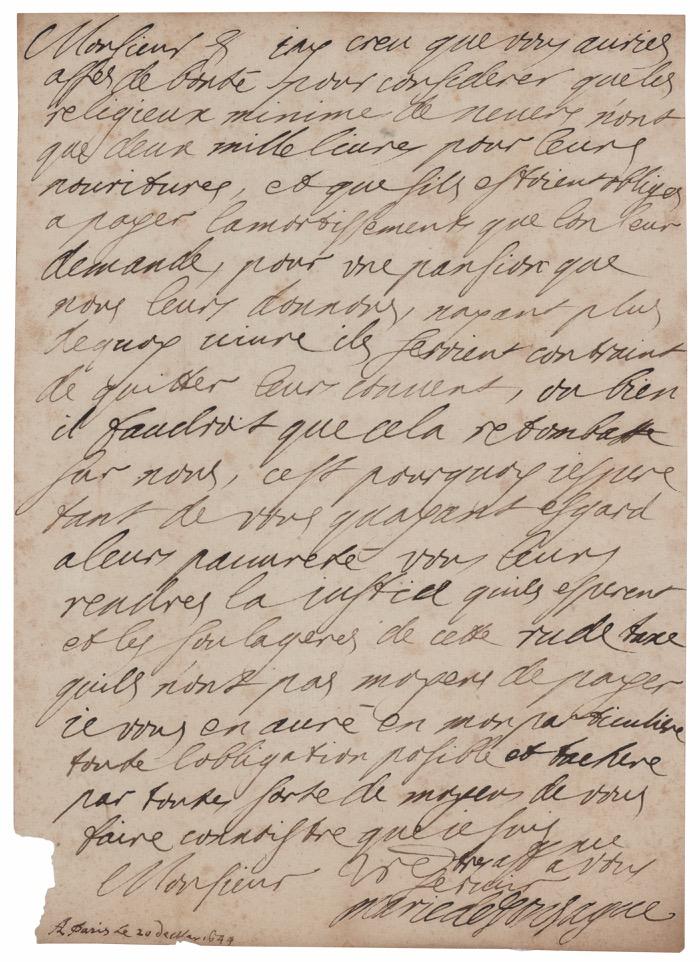 Monsieur iay creu que vous auries
asses de bonté pour considerer que les
religieux minime de nevers n'ont
que deux mille livres pour leurs
nouritures, et que sils estoient obliges
a payer lamortissement que lon leur
demande, pour une pansion que
nous leurs donnons, nayant plus
dequoy vivre ils seroient contraint
de quitter leur couvent, ou bien
il faudroit que cela retombasse
sur nous, cest pourquoy iespere
tant de vous quayant esgard
a leurs pauvreté vous leurs
rendres la justice quils esperent
et les soulageres de cette rude taxe
quils n'ont pas moyens de payer
ie vous en auré en mon particuliere
toute lobligation posible et tachere
par toutes sorte de moyens de vous
faire connoistre que ie suis
Monsieur Vre tres aff a vous
servir
marie de Gonzague
A Paris Le 20 1644